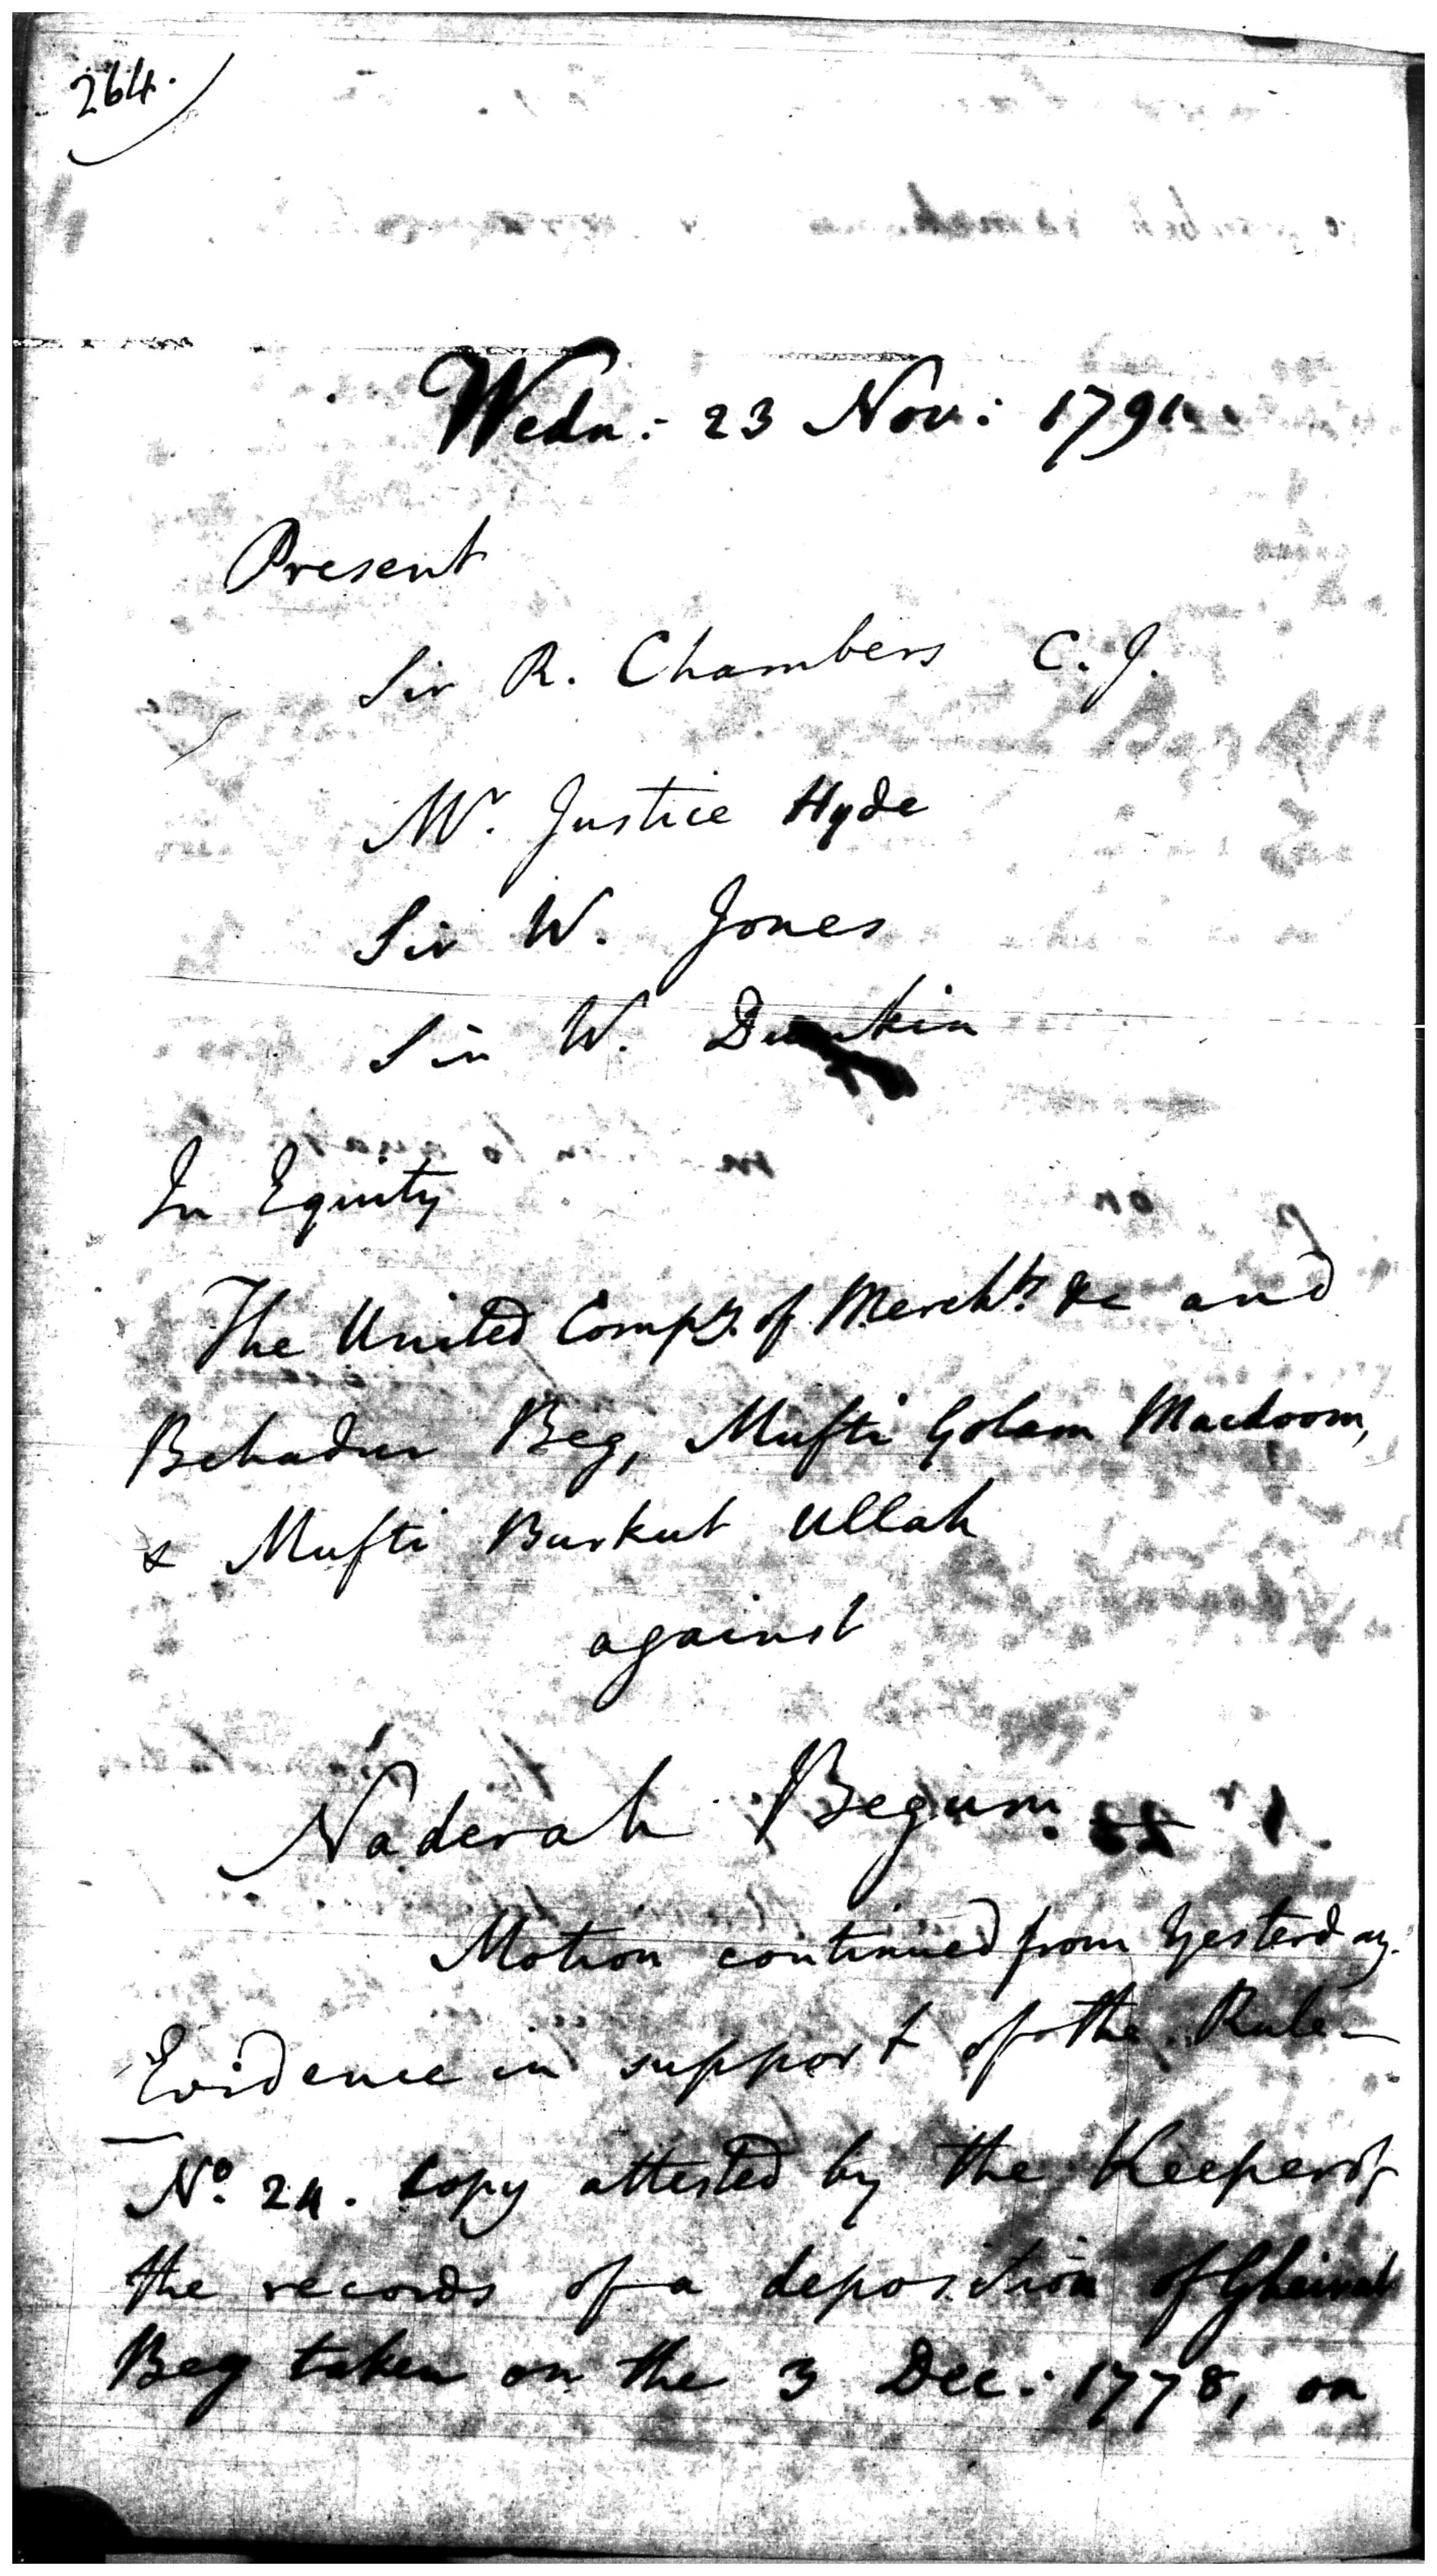 264.
Wedn: 23 Nov: 1791.
Present
Sir R. Chambers C. J.
Mr. Justice Hyde
Sir W. Jones
Sir W. Dunkin
In Equity
The United Compy. of Mercht.s &c and
Behadur Beg, Mufti Golam Mackoom,
& Mufti Burkut Ullah
against
Naderah Begum.
Motion continued from Yesterday.
Evidence in support of the Rule—
No. 24. Copy attested by the Keeper of
the records of a deposition of
Beg taken on the 3 Dec: 1778, on